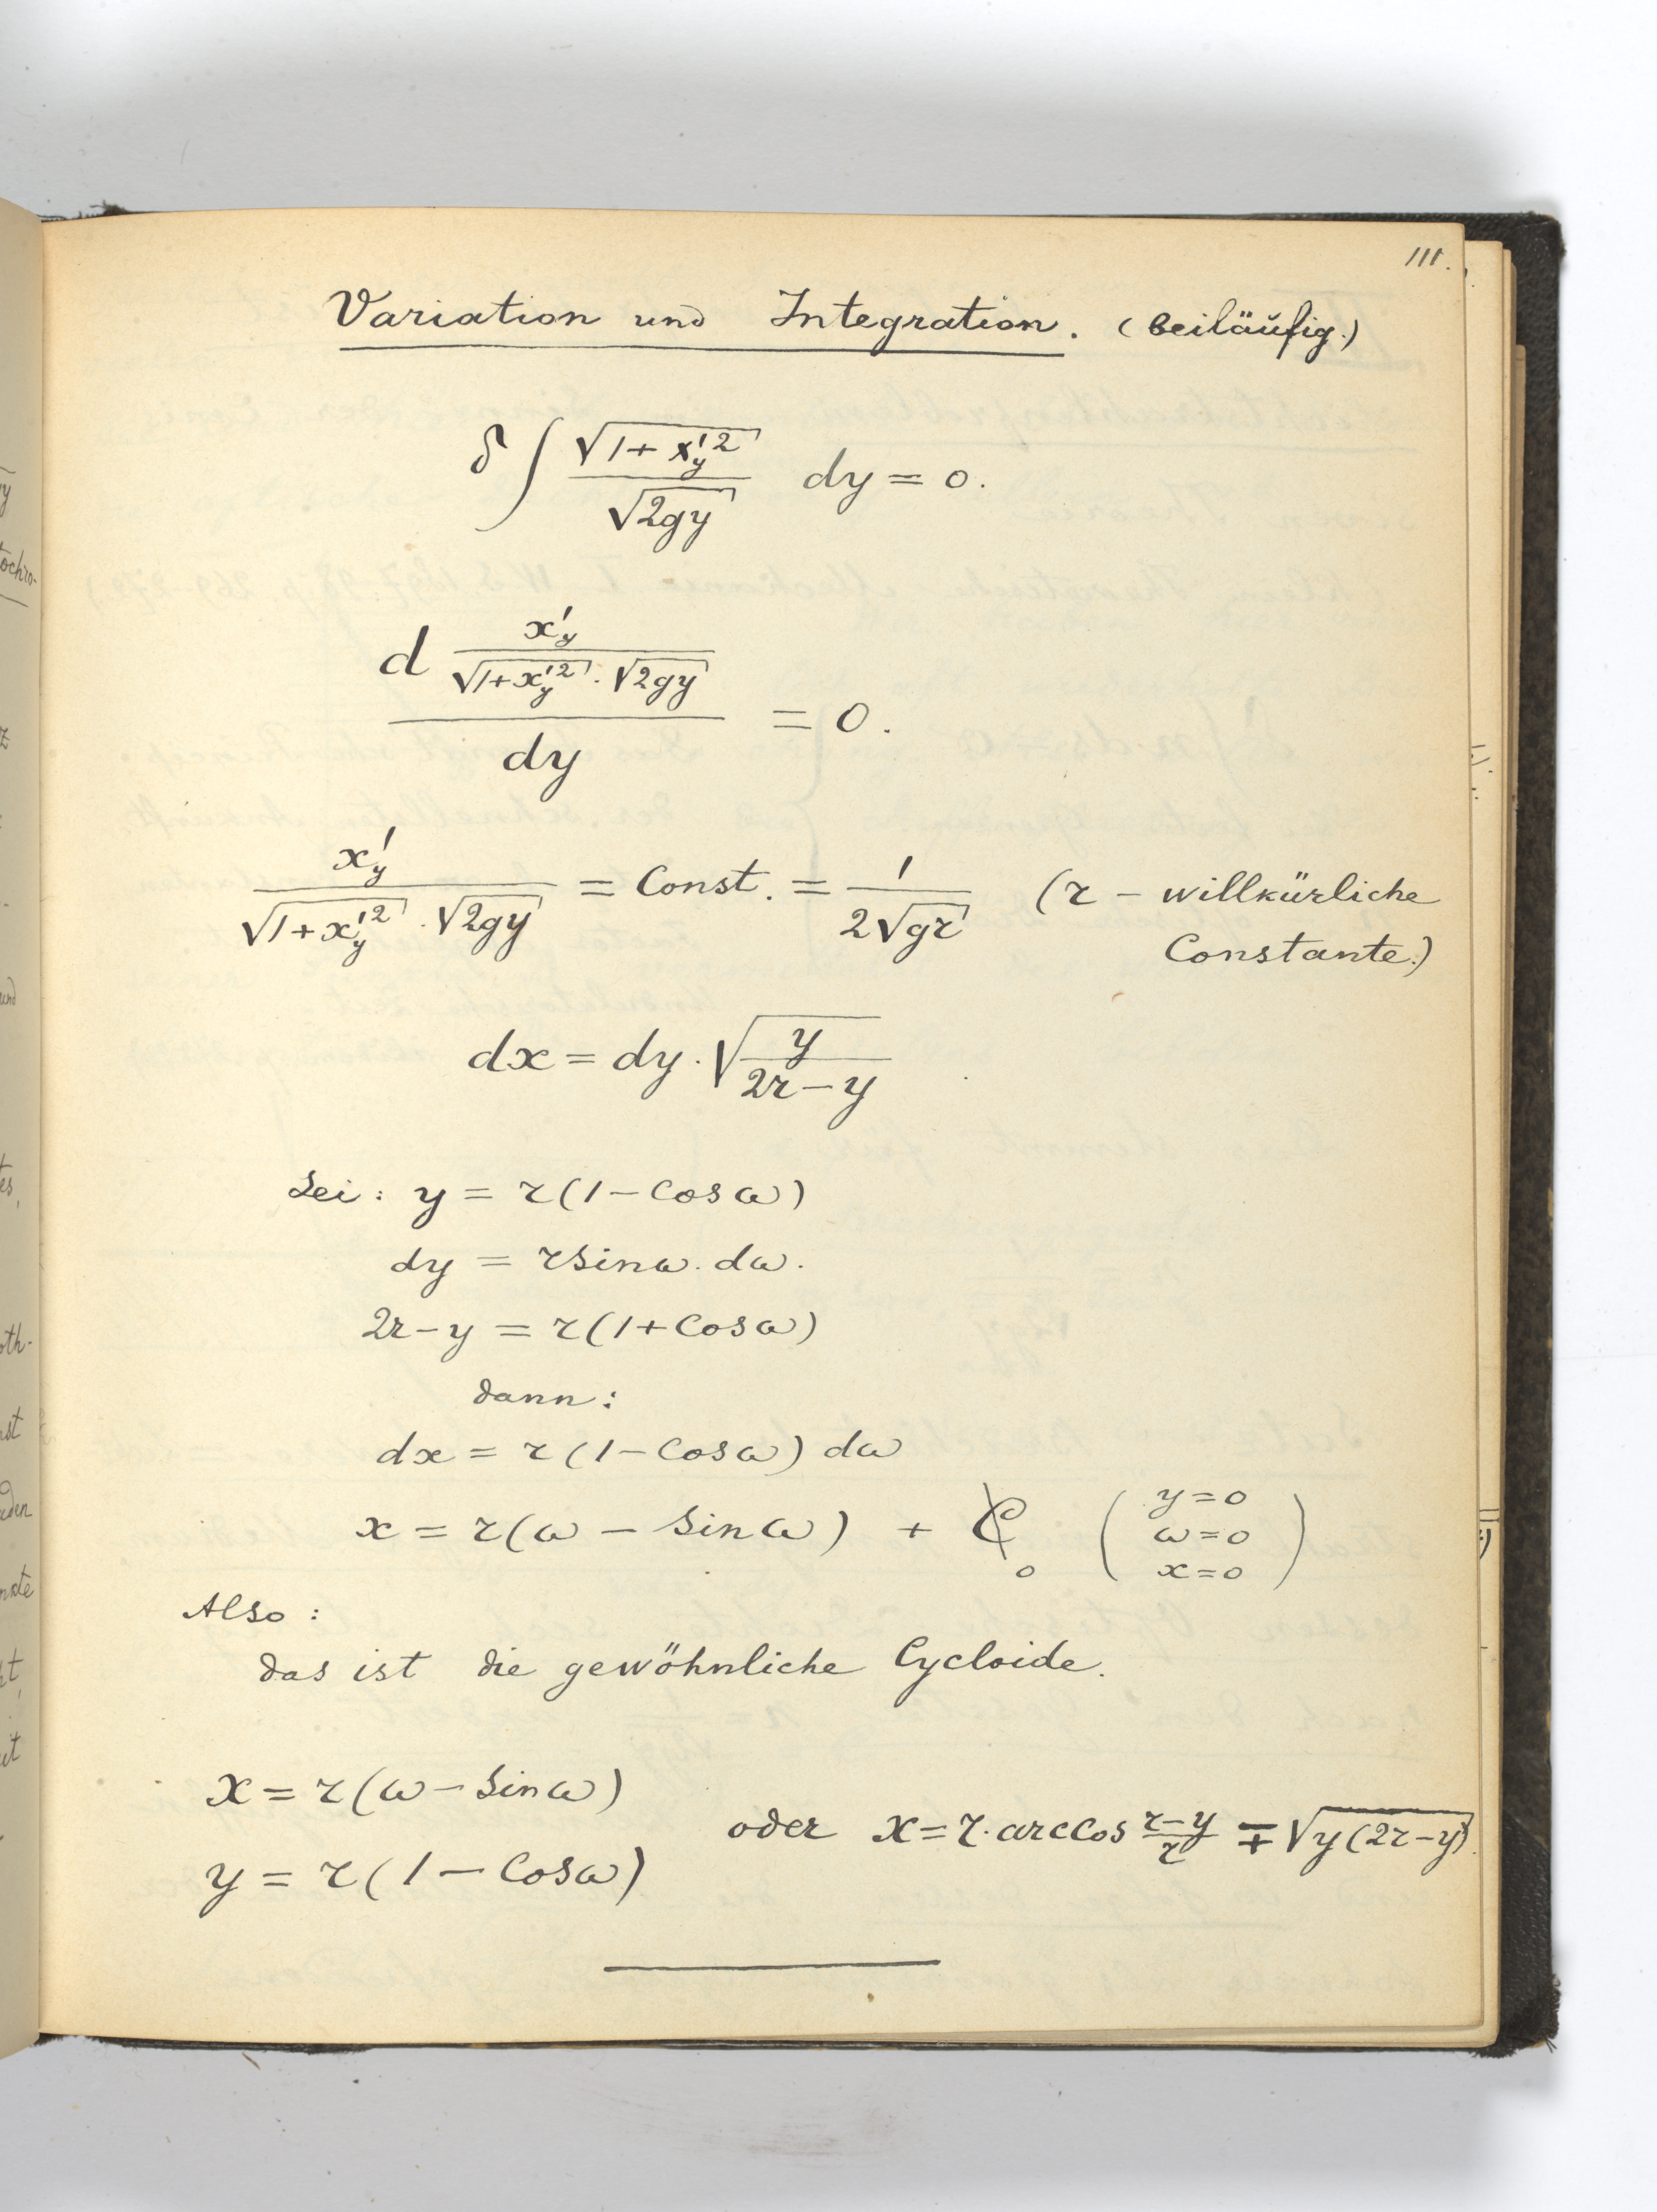 111.
Variation und Integration. (beiläufig.)
δ ∫ √(1 + x'_y²) / √(2gy) dy = 0.
d (x'_y / (√(1+x'_y²) · √(2gy))) / dy = 0.
x'_y / (√(1+x'_y²) · √(2gy)) = Const. = 1 / (2√(gr)) (r – willkürliche
Constante.)
dx = dy · √(y / (2r – y))
Sei: y = r(1 – Cos ω)
dy = r Sin ω. dω.
2r – y = r(1 + Cos ω)
dann:
dx = r(1 – Cos ω) dω
x = r(ω – Sin ω) + C 0 (y=0 ω=0 x=0)
Also:
das ist die gewöhnliche Cycloide.
x = r(ω – Sin ω)
y = r(1 – Cos ω)
oder x = r· arccos (r–y)/r ∓ √(y(2r–y)).